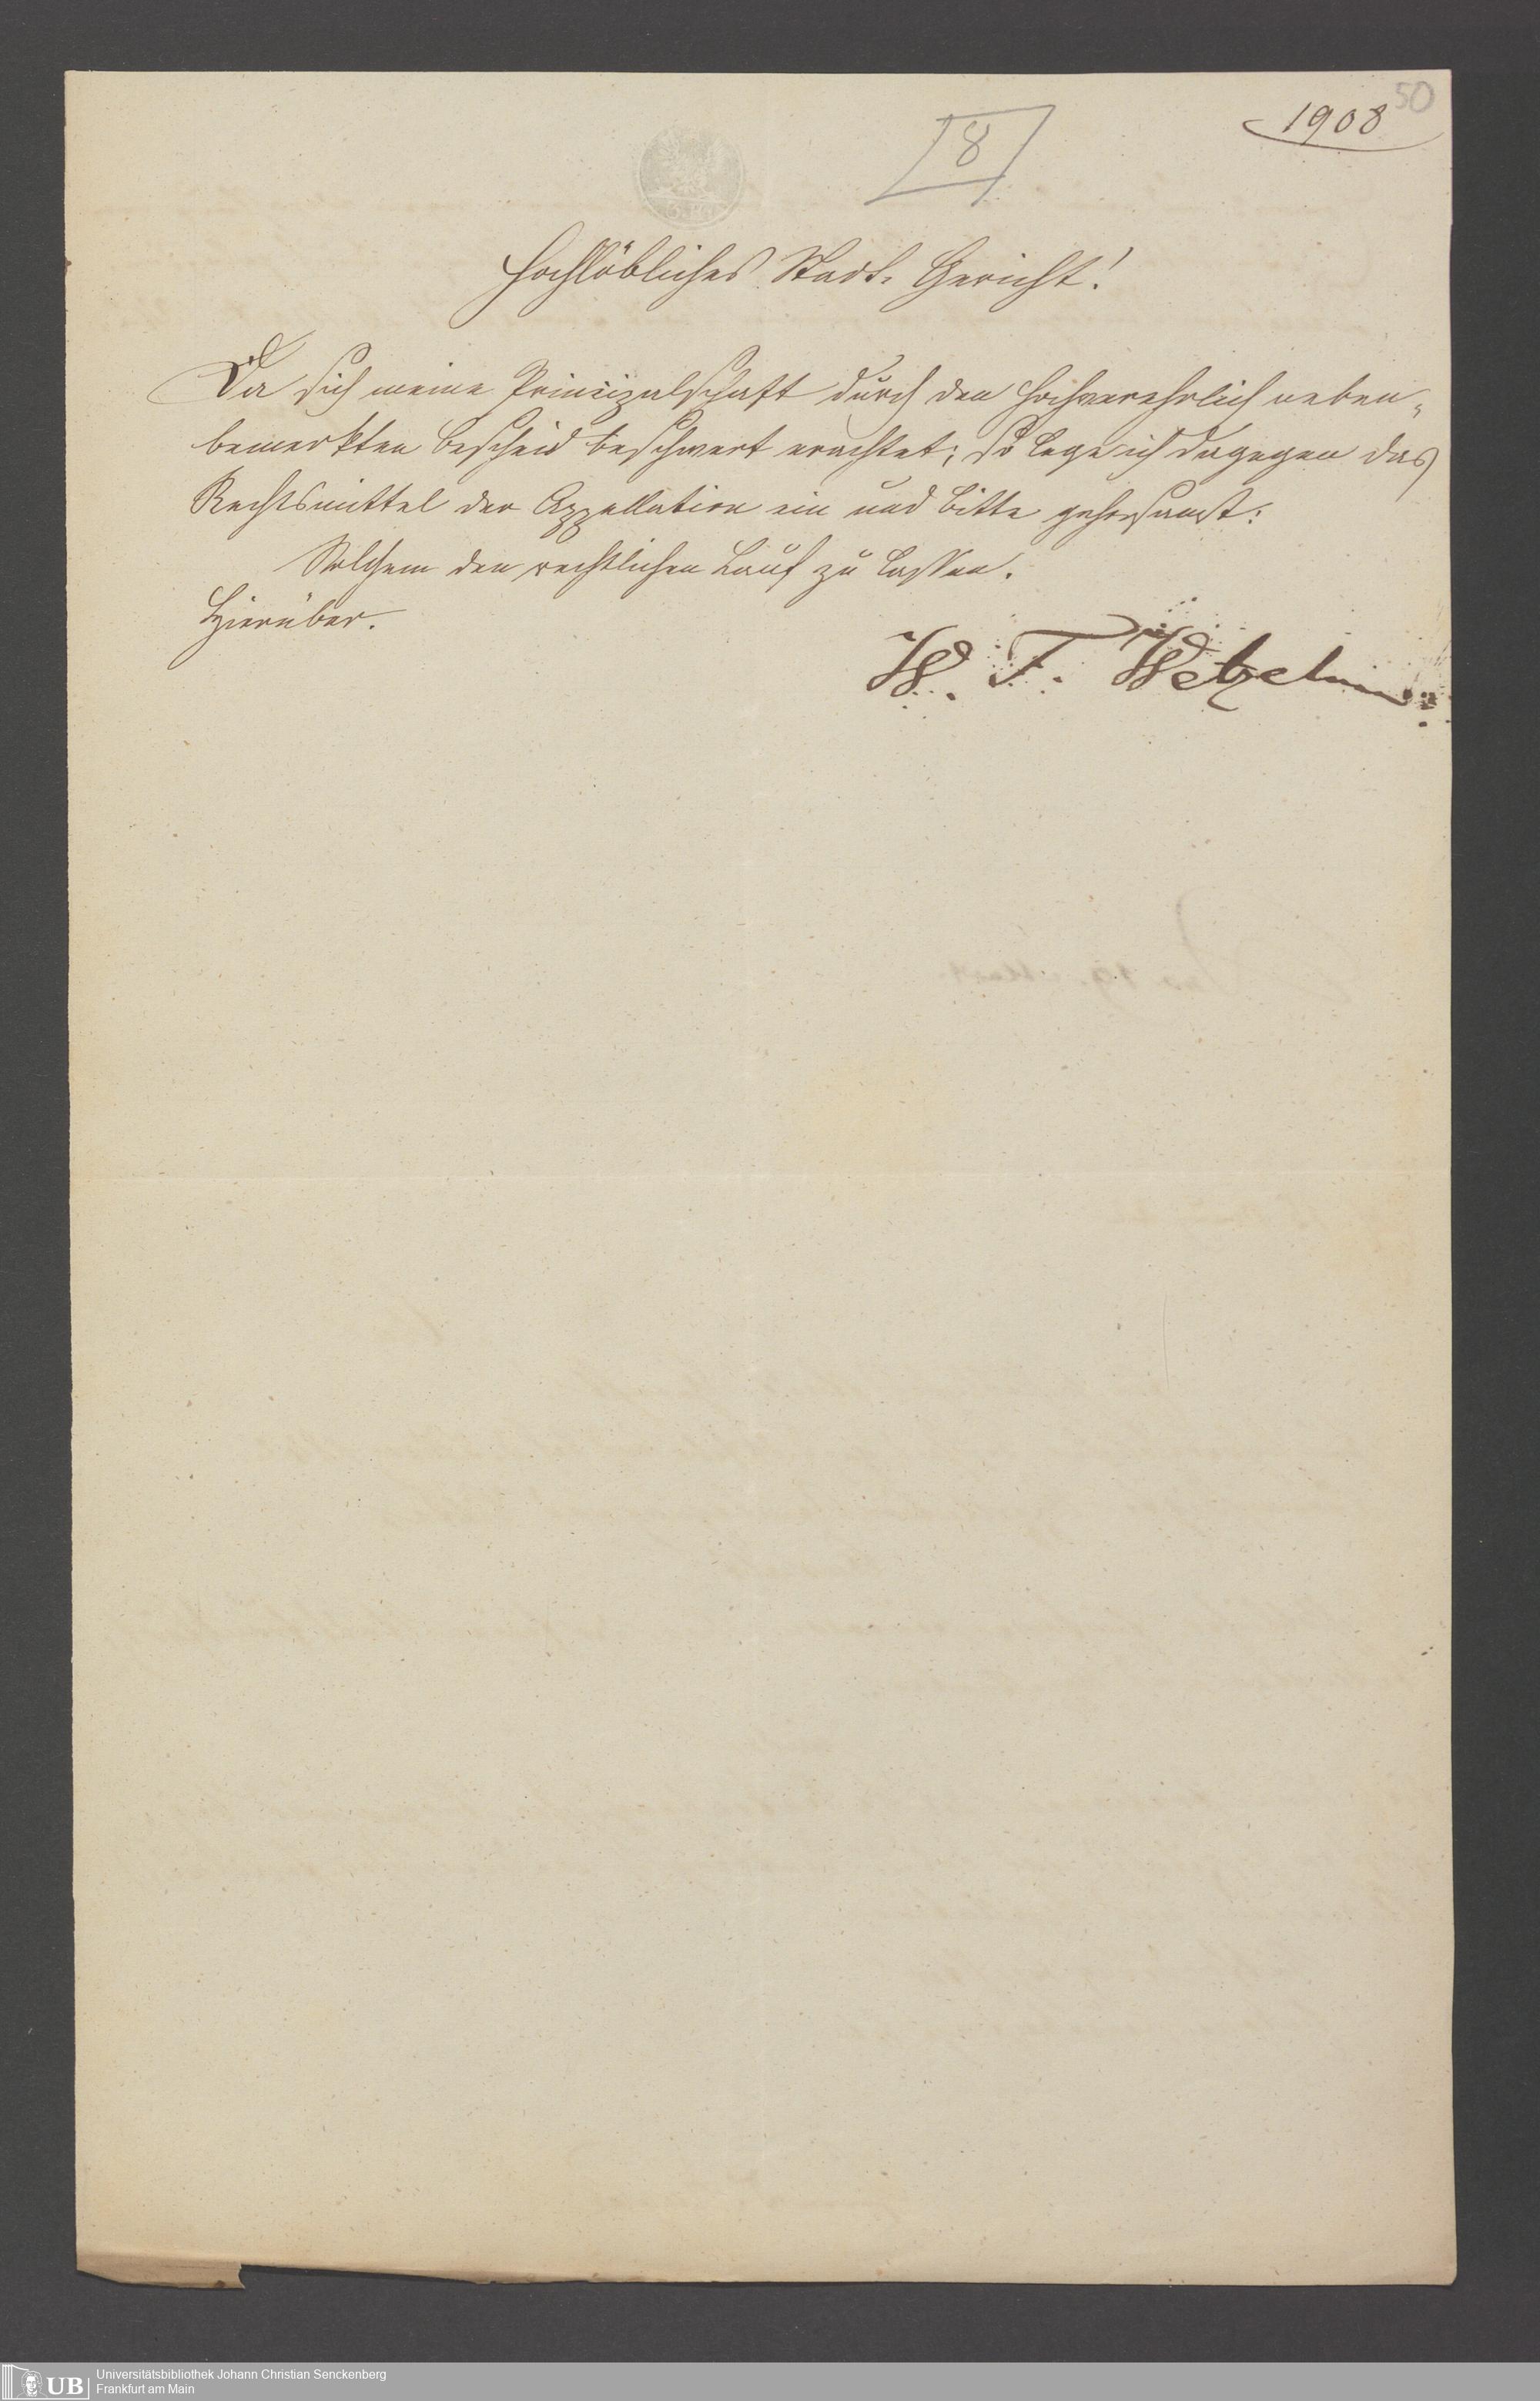 50
1908
8
Hochlöbliches Stadt-Gericht!
Da sich meine Prinzipalschaft durch den hochverehrlich neben-
bemerkten Bescheid beschwert erachtet; so lege ich dagegen das
Rechtsmittel der Appellation ein und bitte gehorsamst:
Solchem den rechtlichen Lauf zu lassen.
Hierüber.
W. F. Wetzel
UB
Universitätsbibliothek Johann Christian Senckenberg
Frankfurt am Main